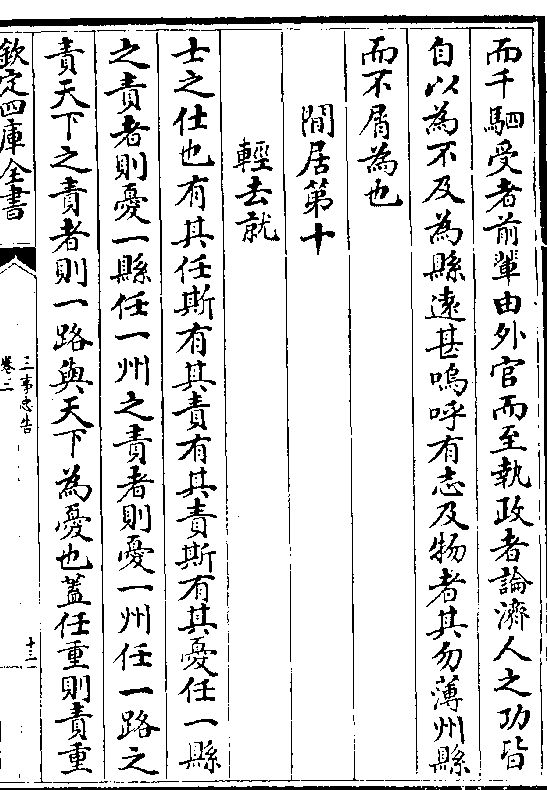 而千駟受者前輩由外官而至執政者論濟人之功皆
自以為不及為縣遠甚嗚呼有志及物者其勿薄州縣
而不屑為也
閒居第十
輕去就
士之仕也有其任斯有其責有其責斯有其憂任一縣
之責者則憂一縣任一州之責者則憂一州任一路之
責天下之責者則一路與天下為憂也蓋任重則責重
欽定四庫全書
三事忠告
卷二
十三